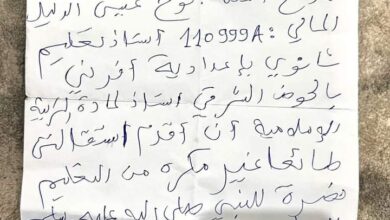 عيسى الدليل
المالي : 110999A أستاذ تعليم
ثانوي بإعدادية أفرني
بالحوض الشرقي أستاذ لمادة التربية
الإسلامية أن أقدم استقالتي
طائعا غير مكره من التعليم
نصرة للنبي صلى الله عليه